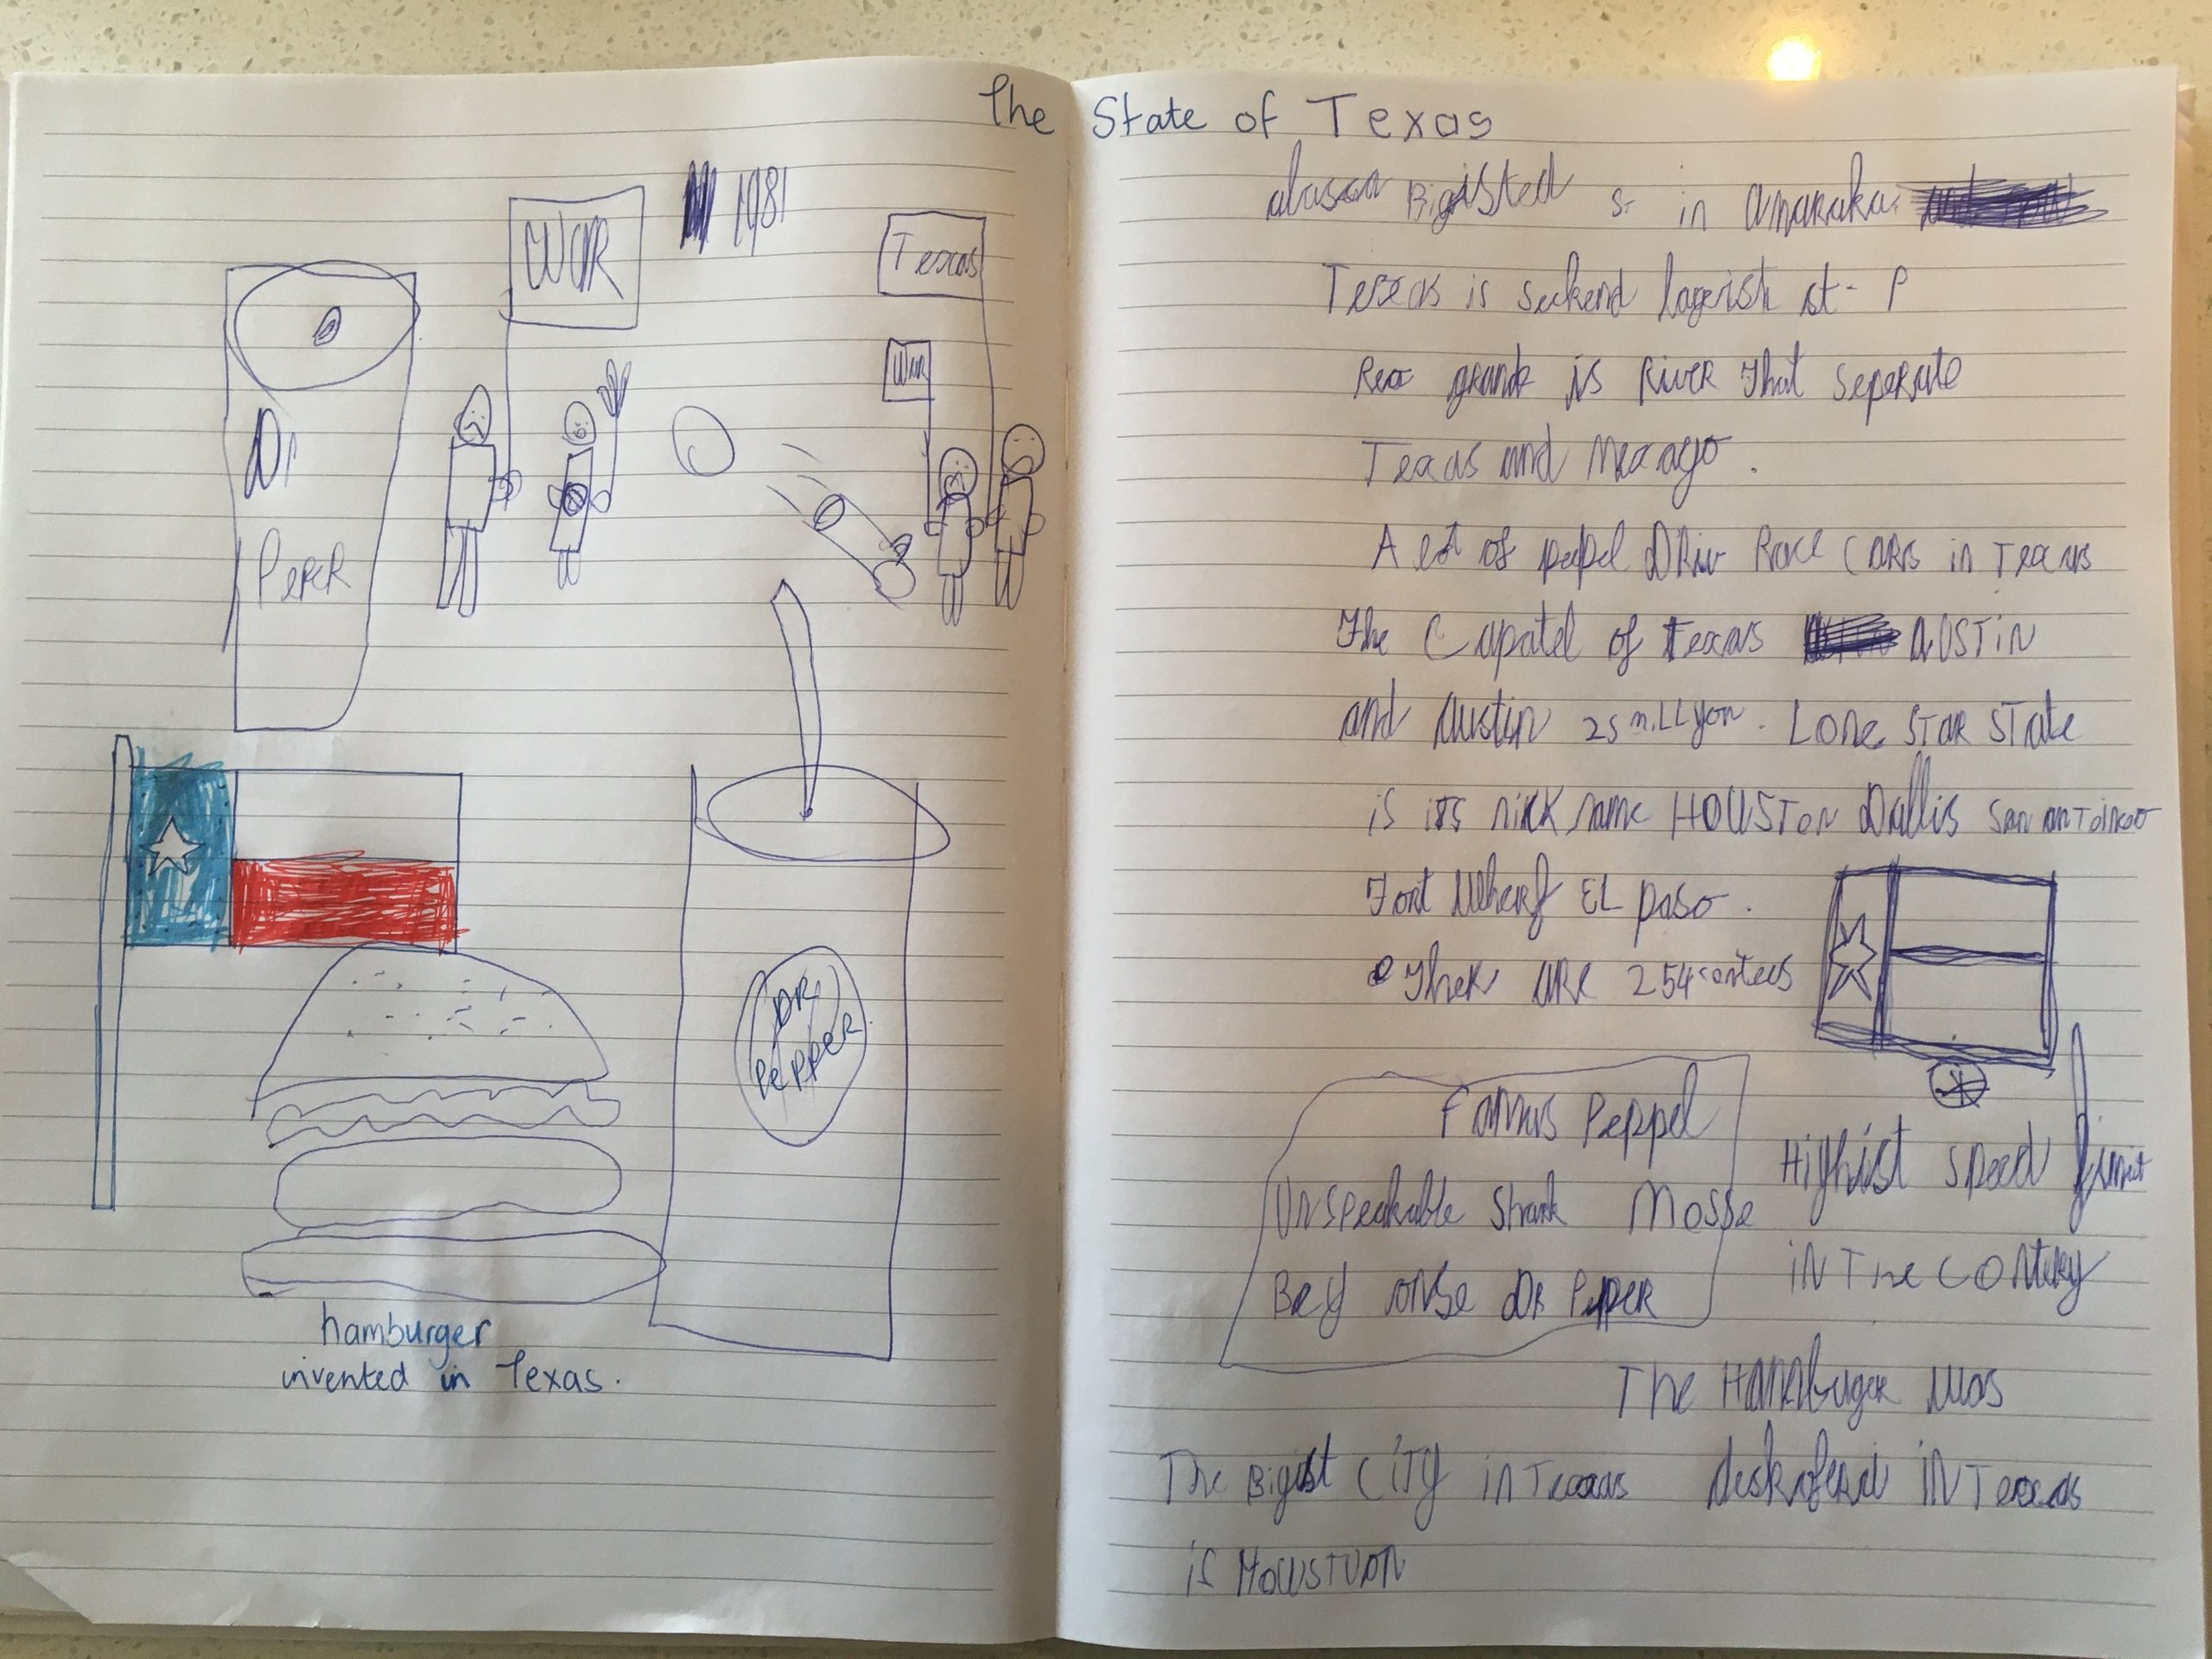 The State of Texas
1981
WOR
Texas
War
Dr
Peper
DR
PePPER
hamburger
invented in Texas.
alascan Bigisted st in amaraka.
Texas is seckend lagerish st- P
Reo grande is River That seperate
Texas and Mexago.
A lot of pepel DRiv Race CARS in Texas
The Capatel of Texas AUSTiN
and Austin 25 millyon. Lone STAR STate
is its nickname HOWSTon Dallis San anToinoo
Fort Wherf EL paso.
Ther are 254 contees
Famus Peppel
UnSpeakable Shark Mosse
Bey onse DR PepPER
Highist speed limit
iN The CONtery
The HamBurger was
deskoferd iN Texas
The Bigist CiTy in Texas
is HowsTuon